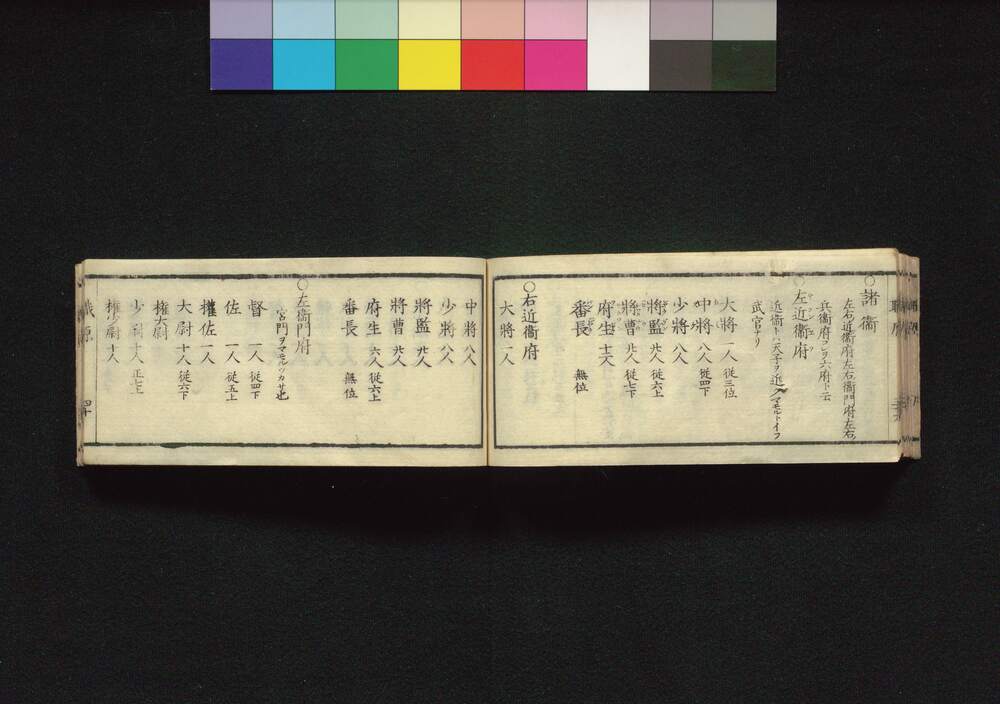 ○諸衞
左右近衞府左右衞門府左右
兵衞府コレヲ六府ト云
○左近衞府
近衞トハ天子ヲ近クマモルトイフ
武官ナリ
大將 一人 從三位
中將 八人 從四下
少將 八人
將監 廿人 從六上
將曹 廿人 從七下
府生 十六人
番長 無位
○右近衞府
大將 一人
中將 八人
少將 八人
將監 廿人
將曹 廿人
府生 六人 從六上
番長 無位
○左衞門府
宮門ヲマモルツカサ也
督 一人 從四下
佐 一人 從五上
權佐 一人
大尉 十人 從六下
權大尉
少尉 十人 正七上
權少尉 十人
職原 四十